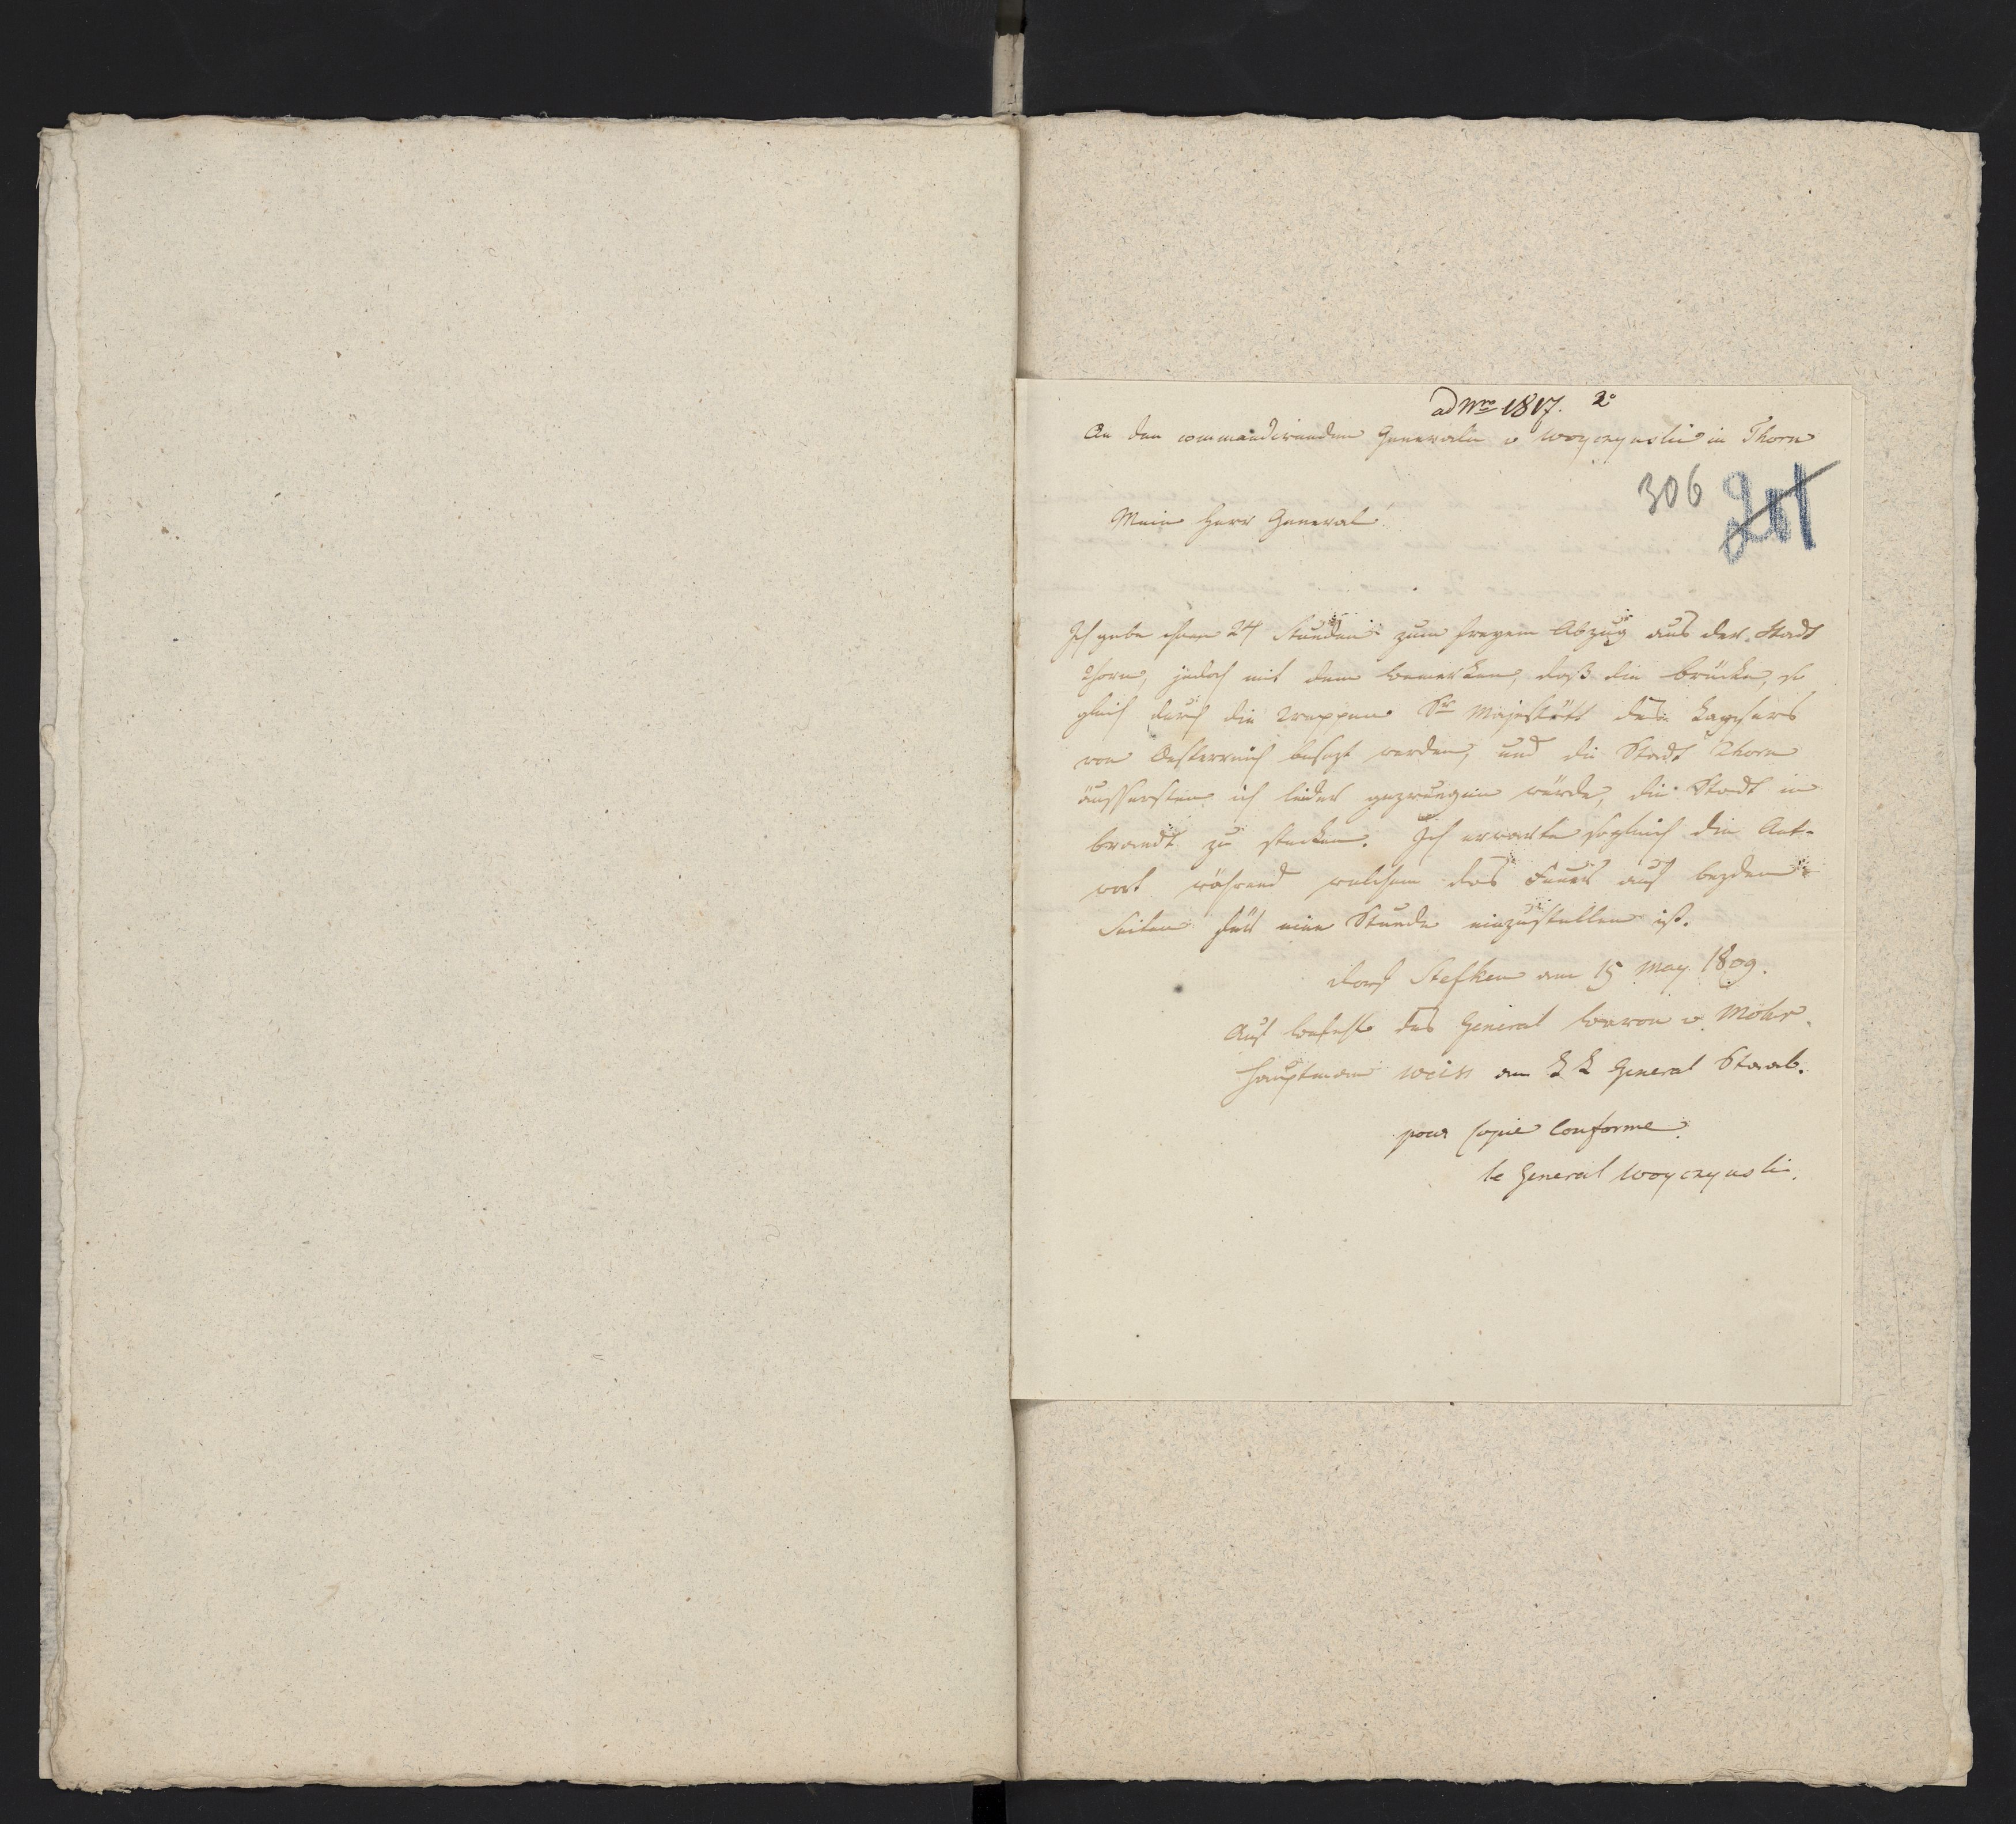 ad Nro 1817. 2o
An den commandirenden Generaln v Woyczynski in Thorn
306
201
Mein Herr General!
Ich gebe ihnen 24 Stunden zum freyem Abzug aus der Stadt
Thorn, jedoch mit dem bemerken, daß die brücke, so
gleich durch die Truppen Sr Majestätt des Kaysers
von Oesterreich besezt werden, und die Stadt Thorn
äussersten ich leider gezwungen würde, die Stadt in
brandt zu stecken. Ich erwarte sogleich die Ant-
wort während welchem das Feuer auf beyden
Seiten für eine Stunde einzustellen ist.
Dorf Stefken am 15 May 1809.
Auf befehl des General baron v. Mohr.
Hauptmann Weiss am K K General Staab.
pour Copie Conforme
le General Woyczynski.